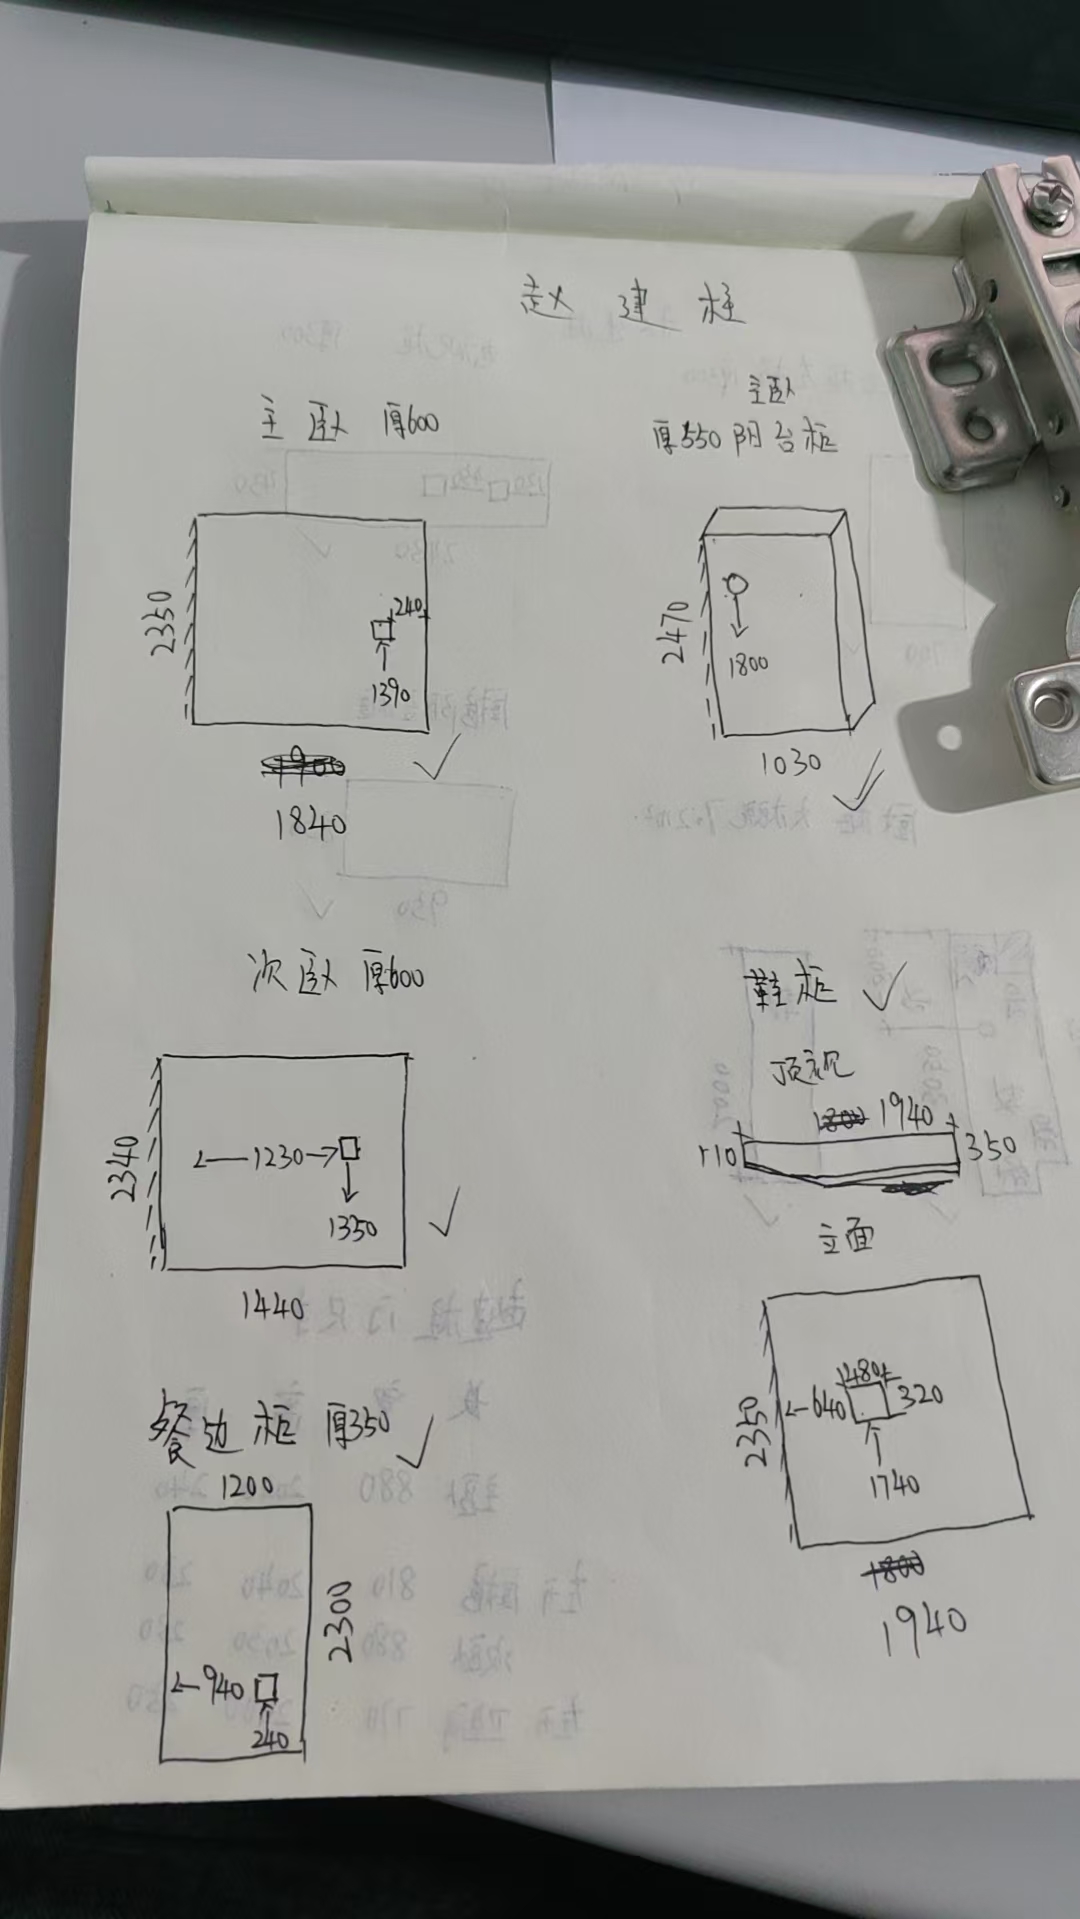 赵建柱
主卧 厚600
2350
240
1390
1840
主卧
厚550阳台柜
2470
1800
1030
次卧 厚600
2340
1230
1350
1440
鞋柜
顶视
1800 1940
110
350
立面
2350
480
640
320
1740
1800
1940
餐边柜 厚350
1200
2300
940
240